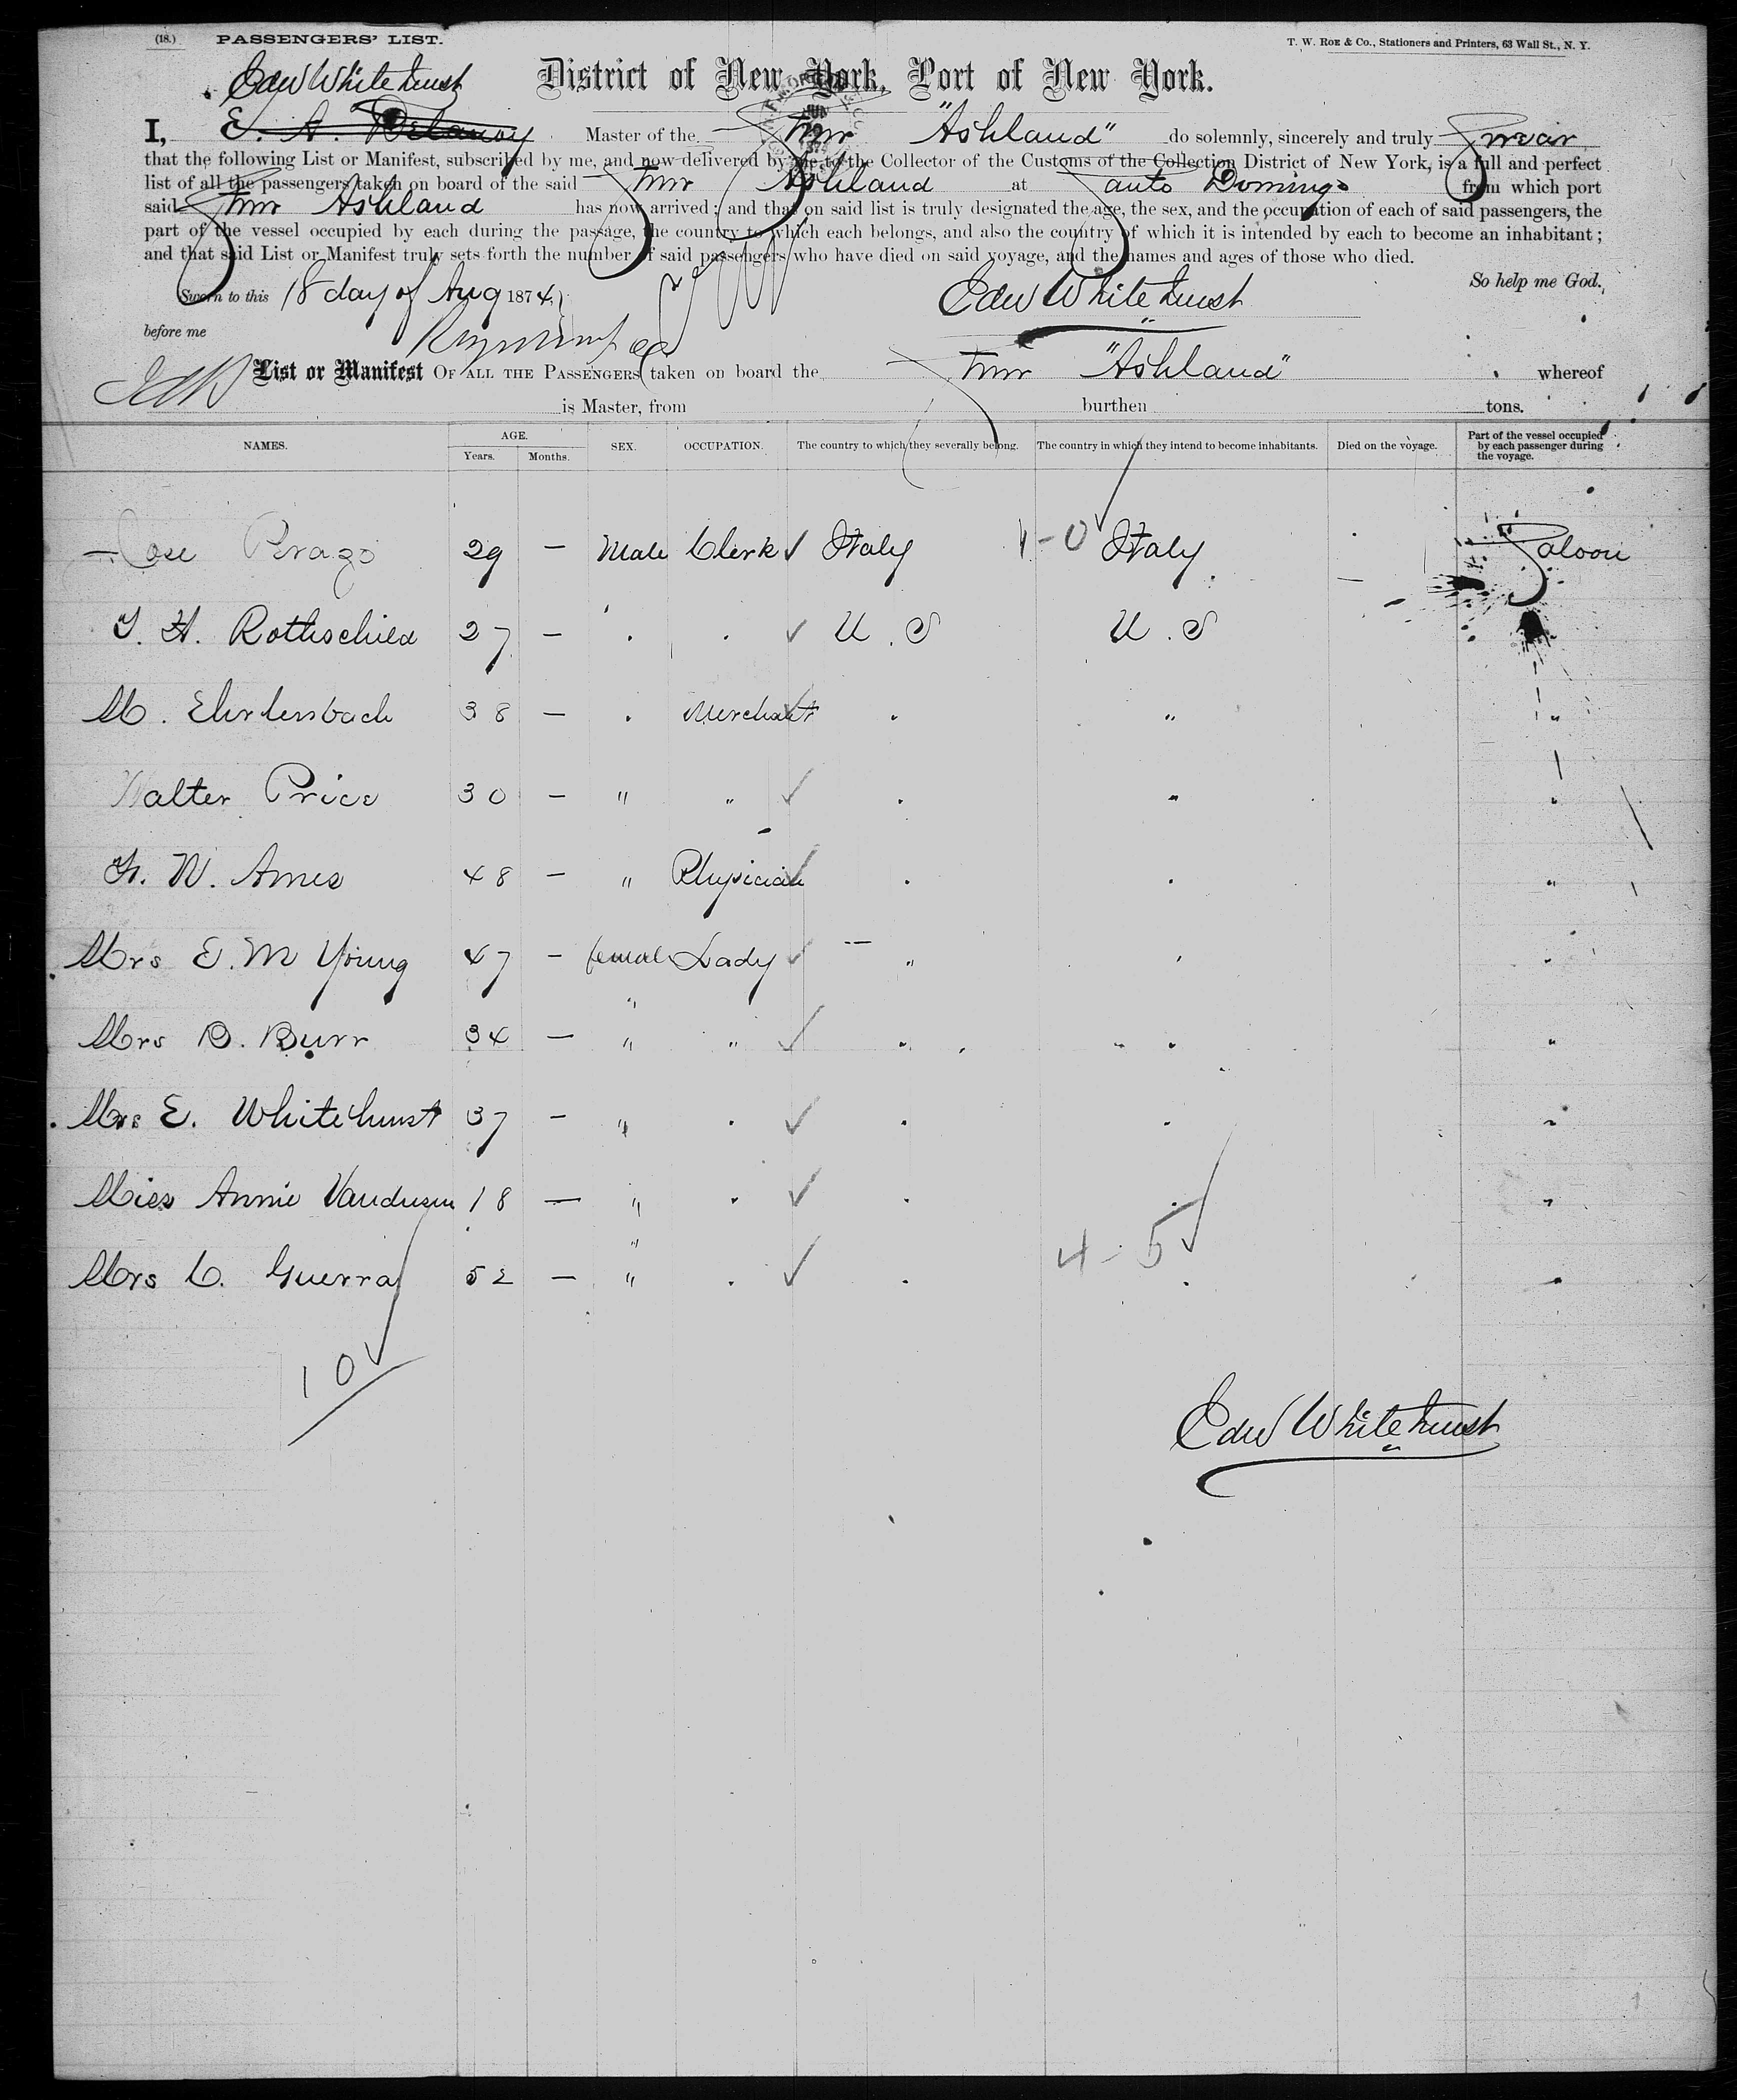 (18.) PASSENGERS' LIST. T. W. ROE & Co., Stationers and Printers, 63 Wall St., N. Y.
Edw Whitehurst
District of New York, Port of New York.
I, E. A. Delanoy Master of the Stmr "Ashland" do solemnly, sincerely and truly Swear
that the following List or Manifest, subscribed by me, and now delivered by me to the Collector of the Customs of the Collection District of New York, is a full and perfect
list of all the passengers taken on board of the said Stmr Ashland at Santo Domingo from which port
said Stmr Ashland has now arrived; and that on said list is truly designated the age, the sex, and the occupation of each of said passengers, the
part of the vessel occupied by each during the passage, the country to which each belongs, and also the country of which it is intended by each to become an inhabitant;
and that said List or Manifest truly sets forth the number of said passengers who have died on said voyage, and the names and ages of those who died.
So help me God.
Sworn to this 18 day of Aug 1874 Edw Whitehurst
before me
List or Manifest OF ALL THE PASSENGERS taken on board the Stmr "Ashland" whereof
is Master, from burthen tons.
NAMES. AGE. Years. Months. SEX. OCCUPATION. The country to which they severally belong. The country in which they intend to become inhabitants. Died on the voyage. Part of the vessel occupied by each passenger during the voyage.
Jose Prazo 29 — Male Clerk Italy 1-0 Italy Saloon
J. H. Rothschild 27 — " " U. S U. S
M. — 38 — " Merchant " " "
Walter Price 30 — " " " " "
F. W. Ames 48 — " Physician " " "
Mrs E. M Young 47 — female Lady " " "
Mrs B. Burr 34 — " " " " "
Mrs E. Whitehurst 37 — " " " " "
Miss Annie Vandusen 18 — " " " " "
Mrs C. Guerra 52 — " " " 4-5 " "
10
Edw Whitehurst